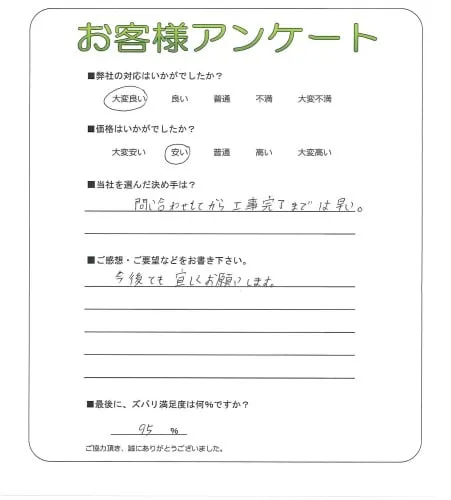 お客様アンケート
■弊社の対応はいかがでしたか？
大変良い 良い 普通 不満 大変不満
■価格はいかがでしたか？
大変安い 安い 普通 高い 大変高い
■当社を選んだ決め手は？
問い合わせしてから工事完了までは早い。
■ご感想・ご要望などをお書き下さい。
今後ても宜しくお願いします。
■最後に、ズバリ満足度は何%ですか？
95 %
ご協力頂き、誠にありがとうございました。